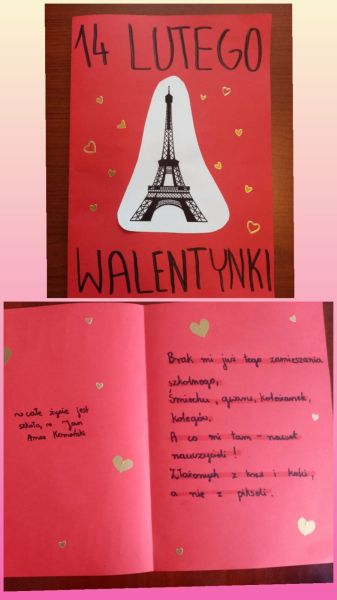 14 LUTEGO
WALENTYNKI
„Całe życie jest
szkołą." Jan
Amos Komeński
Brak mi już tego zamieszania
szkolnego,
Śmiechu, gwaru, koleżanek,
kolegów.
A co mi tam - nawet
nauczycieli!
Złożonych z krwi i kości,
a nie z pikseli.